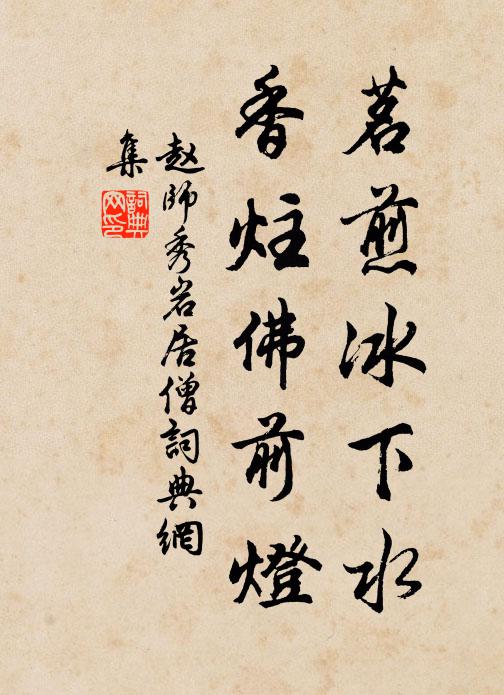 茗煎冰下水
香炷佛前燈
赵師秀岩居僧詞典網
集
詞典
网印